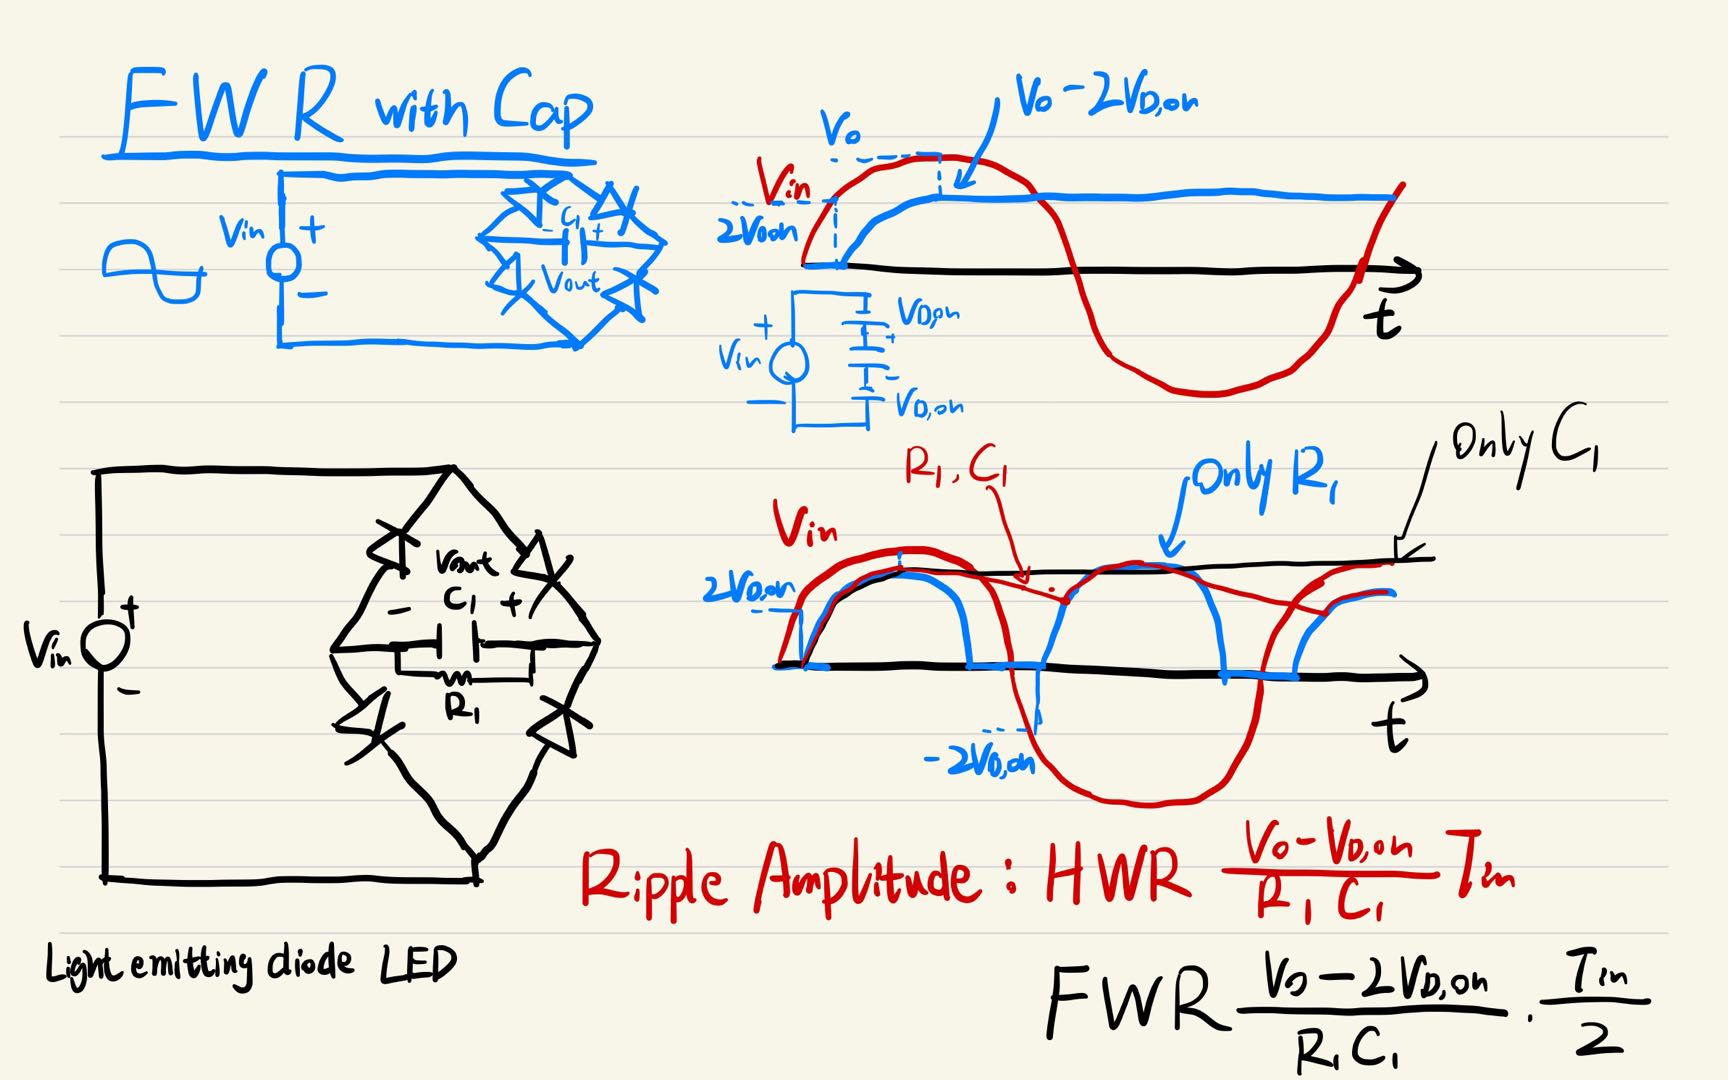 FWR with Cap
Vin + −
C1
− +
Vout
Vo
Vo − 2VD,on
Vin
2VD,on
t
+
Vin
−
VD,on
+
−
VD,on
Vin
+
−
Vout
C1
− +
R1
R1, C1
Only R1
Only C1
Vin
2VD,on
−2VD,on
t
Ripple Amplitude : HWR (Vo − VD,on) / (R1 C1) Tin
Light emitting diode LED
FWR (Vo − 2VD,on) / (R1 C1) · Tin / 2